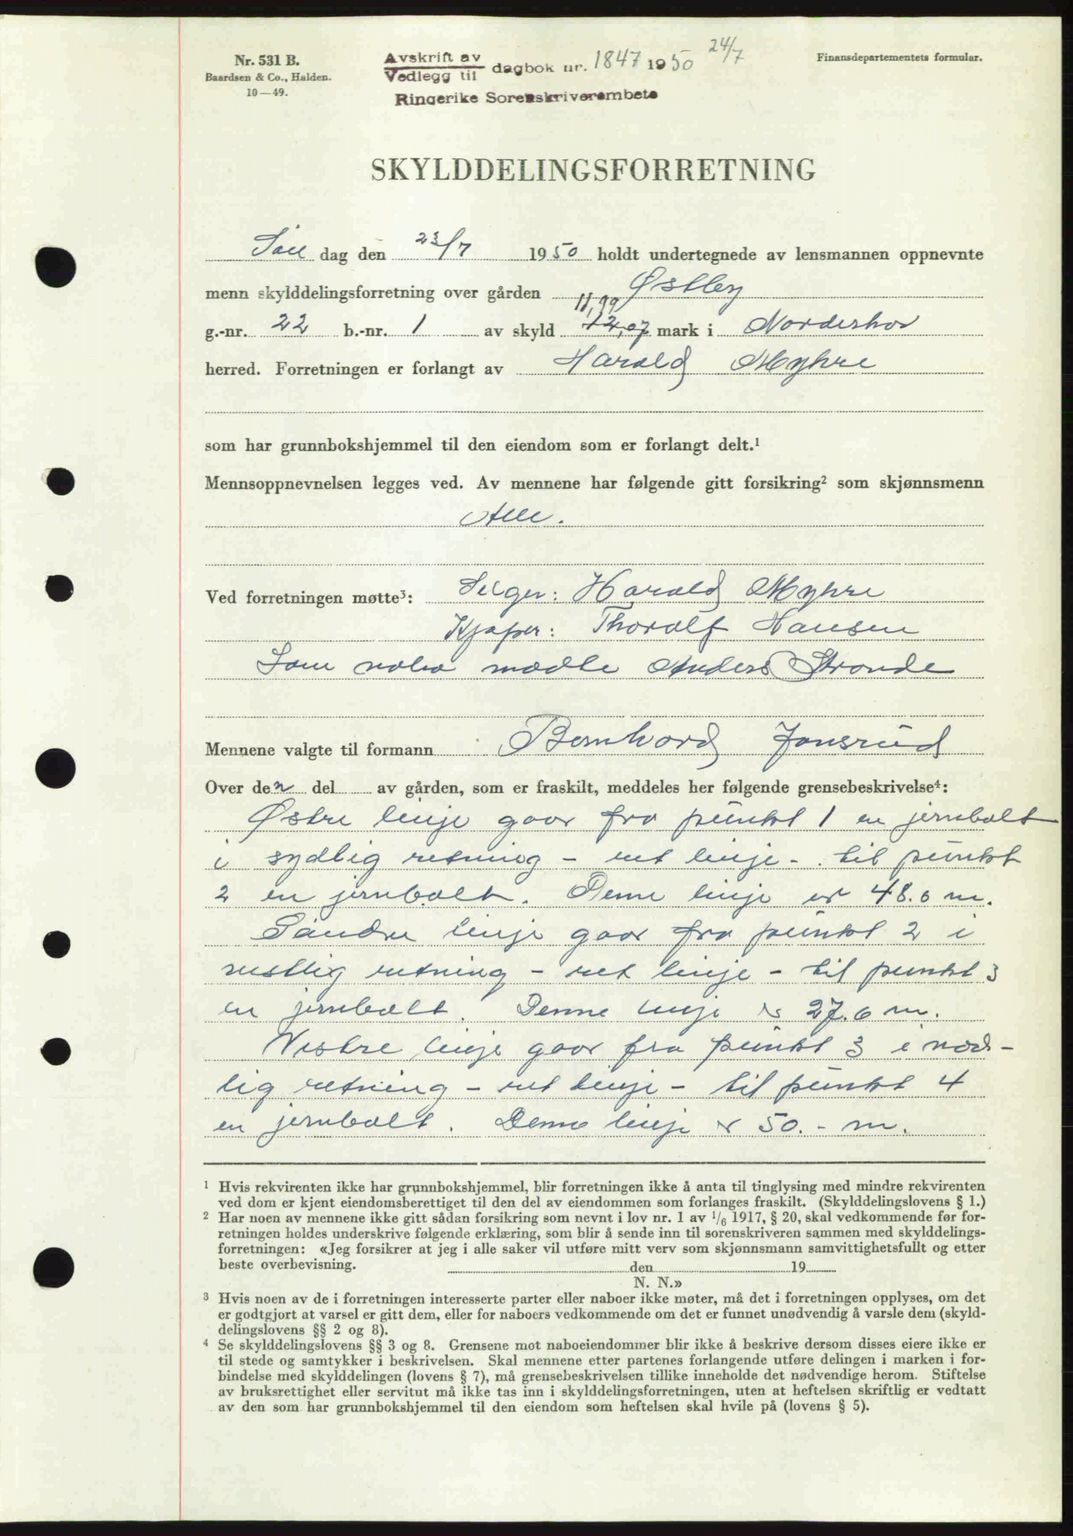 Nr. 531 B.
Baardsen & Co., Halden.
10—49.
Avskrift av
Vedlegg til dagbok nr. 1847 1950 24/7
Ringerike Sorenskriverembete
Finansdepartementets formular.
SKYLDDELINGSFORRETNING
dag den 23/7 1950 holdt undertegnede av lensmannen oppnevnte
menn skylddelingsforretning over gården Østby
11,99
g.-nr. 22 b.-nr. 1 av skyld 12,07 mark i Norderhov
herred. Forretningen er forlangt av Harald Myhre
som har grunnbokshjemmel til den eiendom som er forlangt delt.¹
Mennsoppnevnelsen legges ved. Av mennene har følgende gitt forsikring² som skjønnsmenn
Alle.
Ved forretningen møtte³: Selger: Harald Myhre
Kjøper: Thoralf Hansen
Som nabo mødte Anders Strande
Mennene valgte til formann Bernhard Jonsrud
Over den del av gården, som er fraskilt, meddeles her følgende grensebeskrivelse⁴:
Østre linje gaar fra punkt 1 en jernbolt
i sydlig retning – ret linje – til punkt
2 en jernbolt. Denne linje er 48.0 m.
Søndre linje gaar fra punkt 2 i
vestlig retning – ret linje – til punkt 3
en jernbolt. Denne linje er 27.0 m.
Vestre linje gaar fra punkt 3 i nord-
lig retning – ret linje – til punkt 4
en jernbolt. Denne linje er 50.– m.
¹ Hvis rekvirenten ikke har grunnbokshjemmel, blir forretningen ikke å anta til tinglysing med mindre rekvirenten
ved dom er kjent eiendomsberettiget til den del av eiendommen som forlanges fraskilt. (Skylddelingslovens § 1.)
² Har noen av mennene ikke gitt sådan forsikring som nevnt i lov nr. 1 av 1/6 1917, § 20, skal vedkommende før for-
retningen holdes underskrive følgende erklæring, som blir å sende inn til sorenskriveren sammen med skylddelings-
forretningen: «Jeg forsikrer at jeg i alle saker vil utføre mitt verv som skjønnsmann samvittighetsfullt og etter
beste overbevisning. den 19
N. N.»
³ Hvis noen av de i forretningen interesserte parter eller naboer ikke møter, må det i forretningen opplyses, om det
er godtgjort at varsel er gitt dem, eller for naboers vedkommende om det er funnet unødvendig å varsle dem (skyld-
delingslovens §§ 2 og 8).
⁴ Se skylddelingslovens §§ 3 og 8. Grensene mot naboeiendommer blir ikke å beskrive dersom disses eiere ikke er
til stede og samtykker i beskrivelsen. Skal mennene etter partenes forlangende utføre delingen i marken i for-
bindelse med skylddelingen (lovens § 7), må grensebeskrivelsen tillike inneholde det nødvendige herom. Stiftelse
av bruksrettighet eller servitut må ikke tas inn i skylddelingsforretningen, uten at heftelsen skriftlig er vedtatt
av den som har grunnbokshjemmel til den eiendom som heftelsen skal hvile på (lovens § 5).